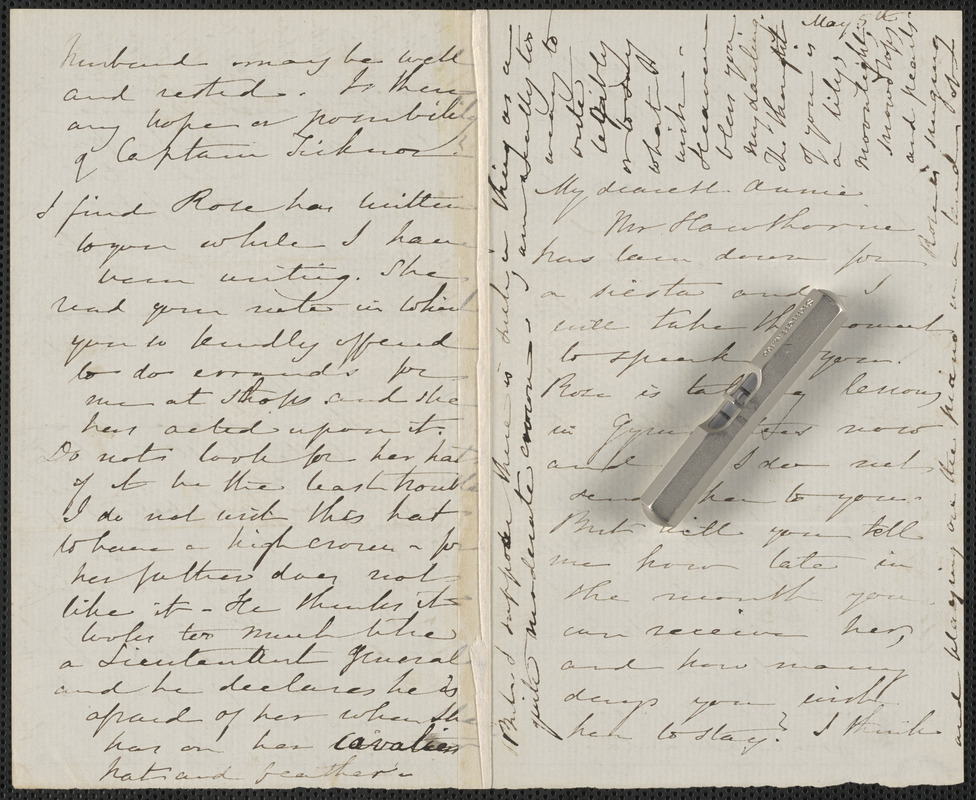 Husband may be well
and rested. Is there
any hope or possibility
of Captain Ticknor
I find Rose has written
to you while I have
been writing. She
read your note in which
you so kindly offered
to do errands for
me at shops and she
has acted upon it.
Do not look for her hat
if it be the least trouble
I do not wish this hat
to have a high crown - for
her father does not
like it - He thinks it
looks too much like
a Lieutentant General
and he declares he is
afraid of her when she
has on her cavalier
hat and feather.
But I suppose there is such a thing as a
quite moderate crown. I am
May 5th
My dearest Annie
Mr Hawthorne
has lain down for
a siesta and I
will take the moment
to speak to you.
Rose is taking lessons
in now
and I do not
send her to you.
But will you tell
me how late in
the month you
can receive her,
and how many
days you wish
her to stay? I think
weary to
write
legibly
or to say
what I
wish -
Heaven
bless you
my darling.
The thought
of you is
a lily,
moonlight,
snowdrops
and pearls
Rose is singing
and playing on the piano